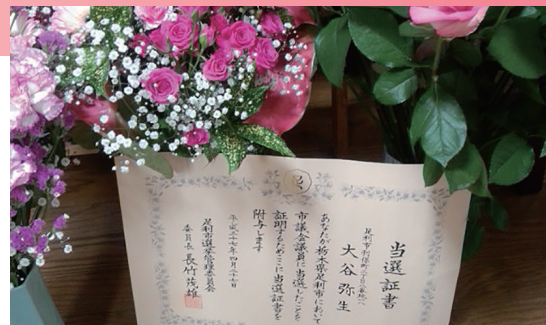 当選証書
足利市
大谷弥生
あなたが栃木県足利市において
市議会議員に当選したことを
証明するためここに当選証書を
附与します
平成二十七年四月二十七日
足利市選挙管理委員会
委員長 長竹茂雄